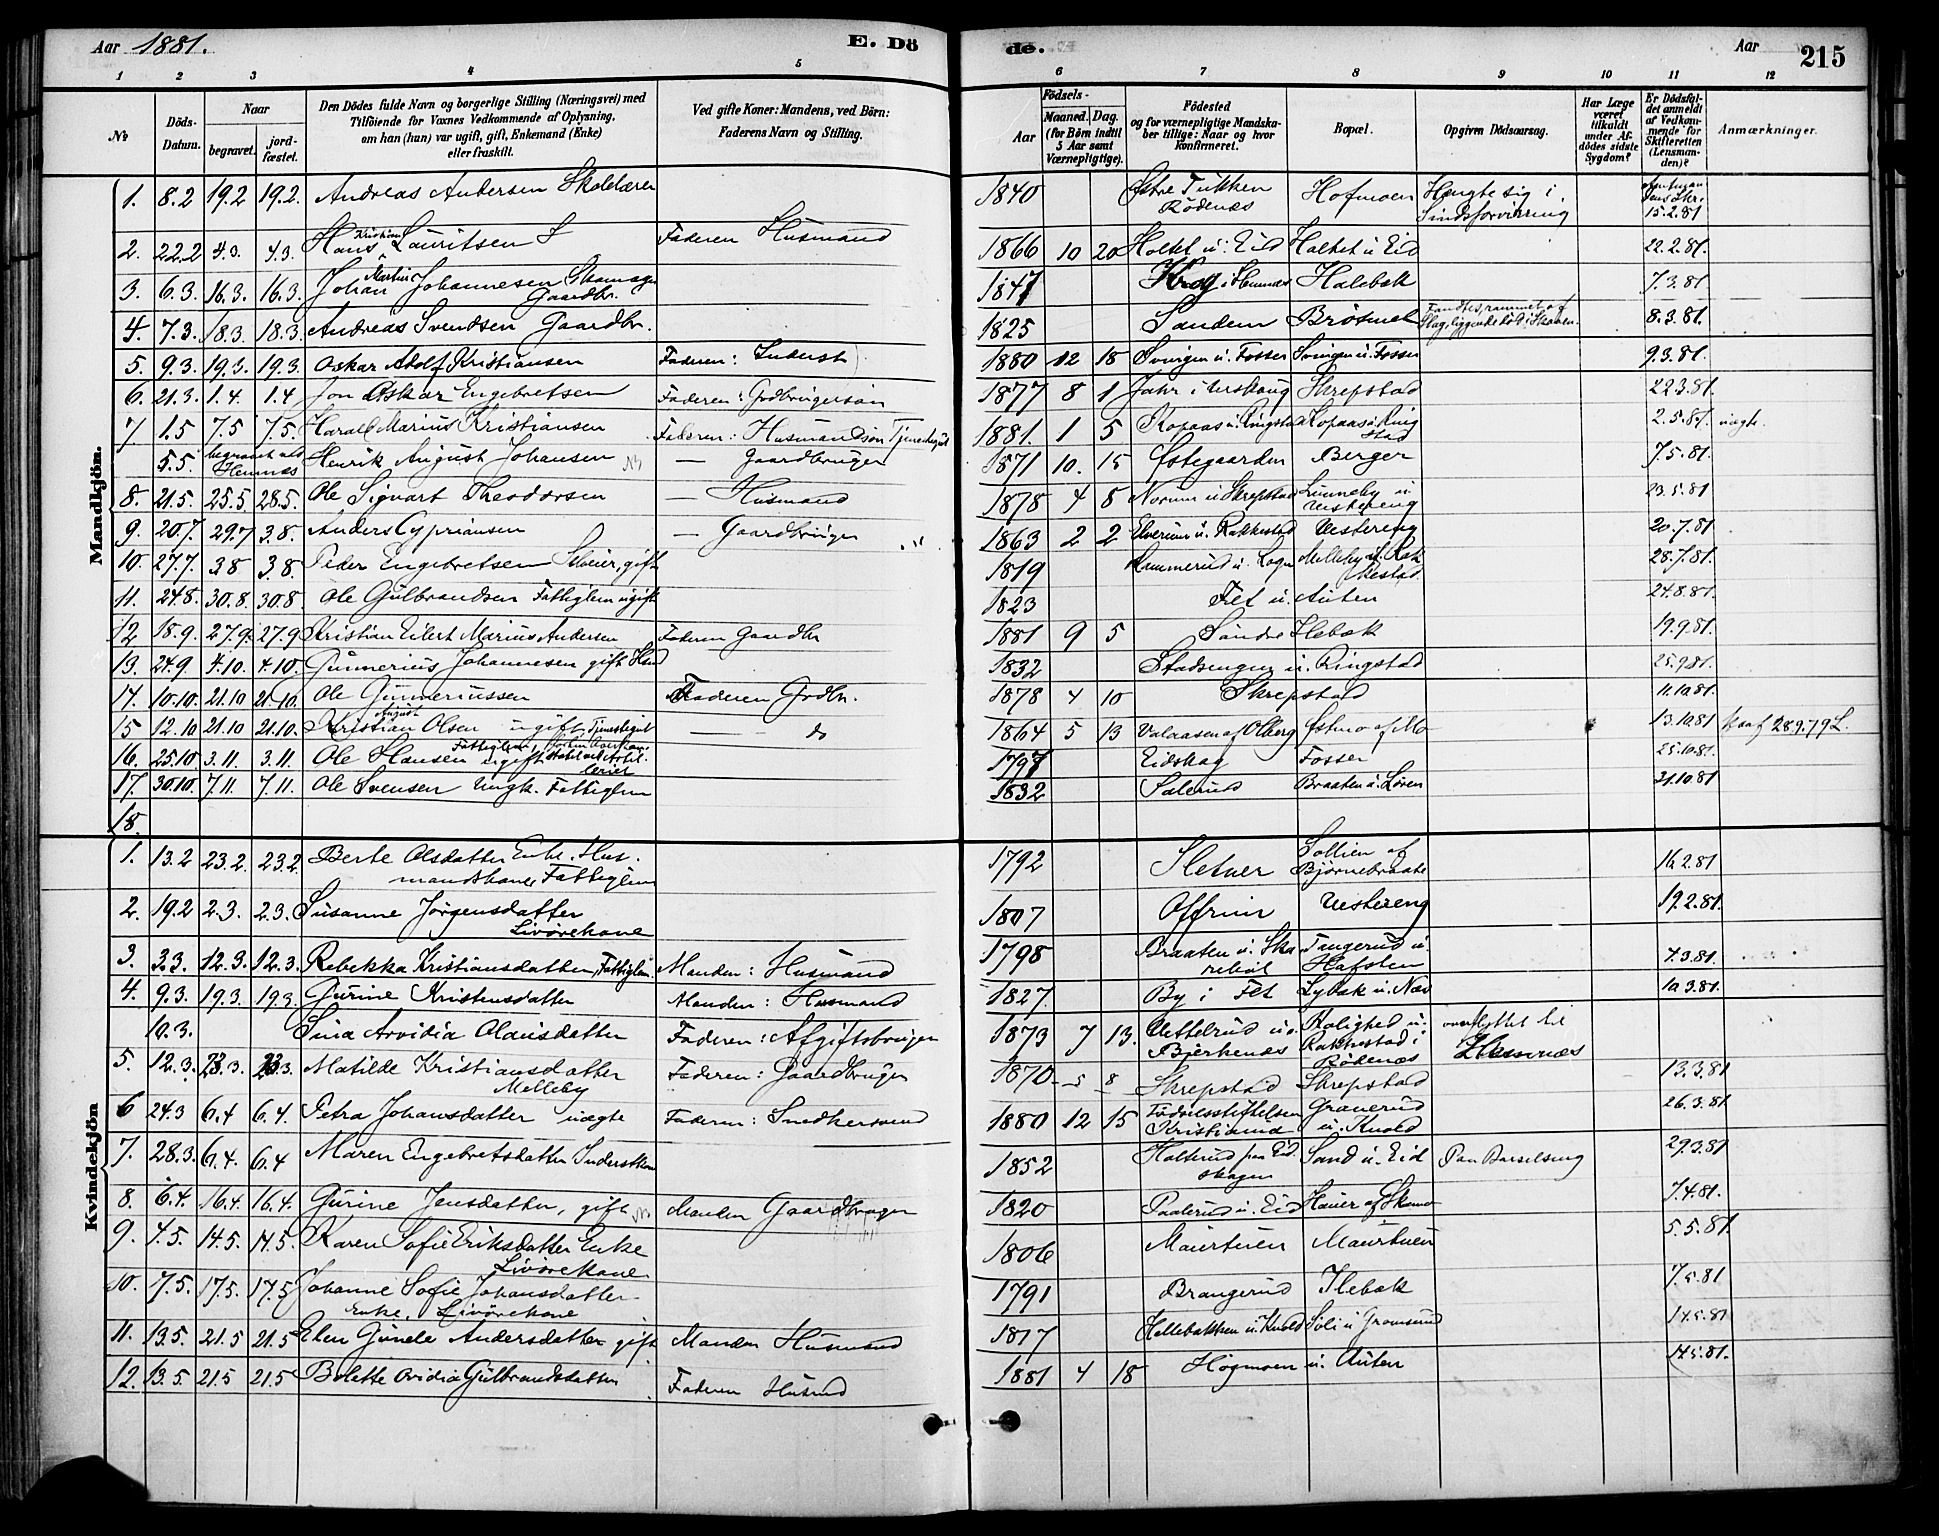 Aar 1881. E. Dö de. Aar 215
1 2 3 4 5 6 7 8 9 10 11 12
No
Döds-Datum.
Naar
begravet.
jordfæstet.
Den Dödes fulde Navn og borgerlige Stilling (Næringsvei) med
Tilföiende for Voxnes Vedkommende af Oplysning,
om han (hun) var ugift, gift, Enkemand (Enke)
eller fraskilt.
Ved gifte Koner: Mandens, ved Börn:
Faderens Navn og Stilling.
Födsels-
Aar
Maaned. Dag.
(for Börn indtil
5 Aar samt
Værnepligtige).
Födested
og for værnepligtige Mandskaber tillige: Naar og hvor
konfirmeret.
Bopæl.
Opgiven Dödsaarsag.
Har Læge
været
tilkaldt
under Afdödes sidste
Sygdom?
Er Dödsfaldet anmeldt
af Vedkommende for
Skifteretten
(Lensmanden)?
Anmærkninger.
Mandkjön.
1. 8.2 19.2 19.2. Andreas Andersen Skolelærer 1840 Østre Tukken Rödenæs Hofmoen Hængte sig i Sindsforvirring 15.2.81
2. 22.2 4.3. 4.3. Hans Kristian Lauritsen Faderen Husmand 1866 10 20 Holtet u. Eid Holtet u Eid 22.2.81.
3. 6.3. 16.3. 16.3. Johan Martin Johannesen Skomager Gaardbr. 1847 Krog i Hemnæs Halebæk 7.3.81
4. 7.3. 18.3 18.3. Andreas Svendsen Gaardbr. 1825 Sandem Brösmet Fandtes, rammet af Slag, liggende död i Skoven. 8.3.81.
5. 9.3. 19.3. 19.3. Oskar Adolf Kristiansen Faderen: Inderst 1880 12 18 Svingen u. Fosser Svingen u. Fosser 9.3.81.
6. 21.3. 1.4. 1.4 Jon Oskar Engebretsen Faderen: Grdbrugersön 1877 8 1 Jahr i Urskoug Skrepstad 22.3.81.
7 1.5 7.5 7.5. Harald Marius Kristiansen Faderen: Husmandsön Tjenestegut 1881. 1 5 Kopaas u. Ringstad Kopaas u. Ringstad 2.5.81. uægte.
5.5. begravet ved Hemnæs Henrik August Johansen — Gaardbruger 1871 10. 15 Østegaarden Berger 7.5.81.
8. 21.5. 25.5 28.5. Ole Sigvart Theodorsen — Husmand 1878 4 8 Norum u Skrepstad Lunneby u Vestereng 23.5.81
9. 20.7. 29.7 3.8. Anders Cypriansen — Gaardbruger 1863 2 2 Elverum u. Rakkestad Vestereng 20.7.81.
10. 27.7. 3.8 3.8. Peder Engebretsen gift 1819 Hammerud u. Krogn Melleby u. Rakkestad. 28.7.81.
11. 24.8. 30.8. 30.8. Ole Gulbrandsen Fattiglem ugift 1823 Fet u. Auten 24.8.81.
12 18.9. 27.9. 27.9 Kristian Eilert Marius Andersen Faderen Gaardbr 1881 9 5 Söndre Ilebæk 19.9.81.
13. 24.9 4.10. 4.10. Gunnerius Johannesen gift Husmd 1832 Stadsengen u. Ringstad 25.9.81.
14. 10.10. 21.10 21.10. Ole Gunneriussen Faderen Grdbr. 1878 4 10 Skrepstad 11.10.81.
15 12.10 21.10 21.10. Kristian Olsen ugift Tjenestegut — do 1864 5 13 Valaasen af Olberg Østmo af Mo 13.10.81 28.9.79
16. 25.10. 3.11. 3.11. Ole Hansen ugift Fattiglem 1797 Eidskog Fosser 25.10.81.
17. 30.10. 7.11. 7.11. Ole Svensen Ungk. Fattiglem 1832 Salerud Braaten u. Lören 31.10.81
18.
Kvindekjön
1. 13.2 23.2. 23.2. Berte Olsdatter Enke. Husmandskone Fattiglem 1792 Sletner Sollien af Björnebraate 16.2.81
2. 19.2 2.3. 2.3. Susanne Jörgensdatter Livörekone 1807 Offrim Vestereng 19.2.81.
3. 3.3. 12.3. 12.3. Rebekka Kristiansdatter, Fattiglem. Manden: Husmand 1798 Braaten u. Skareböl Tangerud u. Hafsten 4.3.81.
4. 9.3. 19.3. 19.3. Gurine Kristensdatter Manden: Husmand 1827. By i Fet Lybæk u. Næs 10.3.81.
10.3. Sina Arvidia Olausdatter Faderen: Afgiftsbruger 1873 7 13. Vettelrud u. Bjerkenæs Rolighed u. Rakkestad i Rödenæs overflyttet til Hemnæs
5. 12.3. 23.3. 23.3. Matilde Kristiansdatter Melleby Faderen: Gaardbruger 1870 5 8 Skrepstad Skrepstad 13.3.81
6 24.3 6.4 6.4. Petra Johansdatter uægte Faderen: Snedkersvend 1880 12 15 Födselsstiftelsen Kristiania Granerud u. Knold 26.3.81.
7. 28.3. 6.4. 6.4 Maren Engebretsdatter Inderstkone 1852 Holterud paa Eidskogen Sand u. Eid Paa Barselseng 29.3.81
8. 6.4. 16.4. 16.4. Gurine Jensdatter, gift Manden Gaardbruger 1820 Paalerud u. Eid 7.4.81.
9. 4.5. 14.5. 14.5. Karen Sofie Eriksdatter Enke Livörekone 1806 Maurtuen Maurtuen 5.5.81.
10. 7.5. 17.5. 17.5 Johanne Sofie Johansdatter Enke. Livörekone 1791 Brangerud Ilebæk 7.5.81
11. 13.5. 21.5 21.5 Elen Gunele Andersdatter gift Manden Husmand 1817 Hellebækken u. Knold Soli u Gromsund 14.5.81
12. 13.5. 21.5 21.5 Bolette Ovidia Gulbrandsdatter Faderen Husmd 1881 4 18 Högmoen u. Auten 14.5.81.